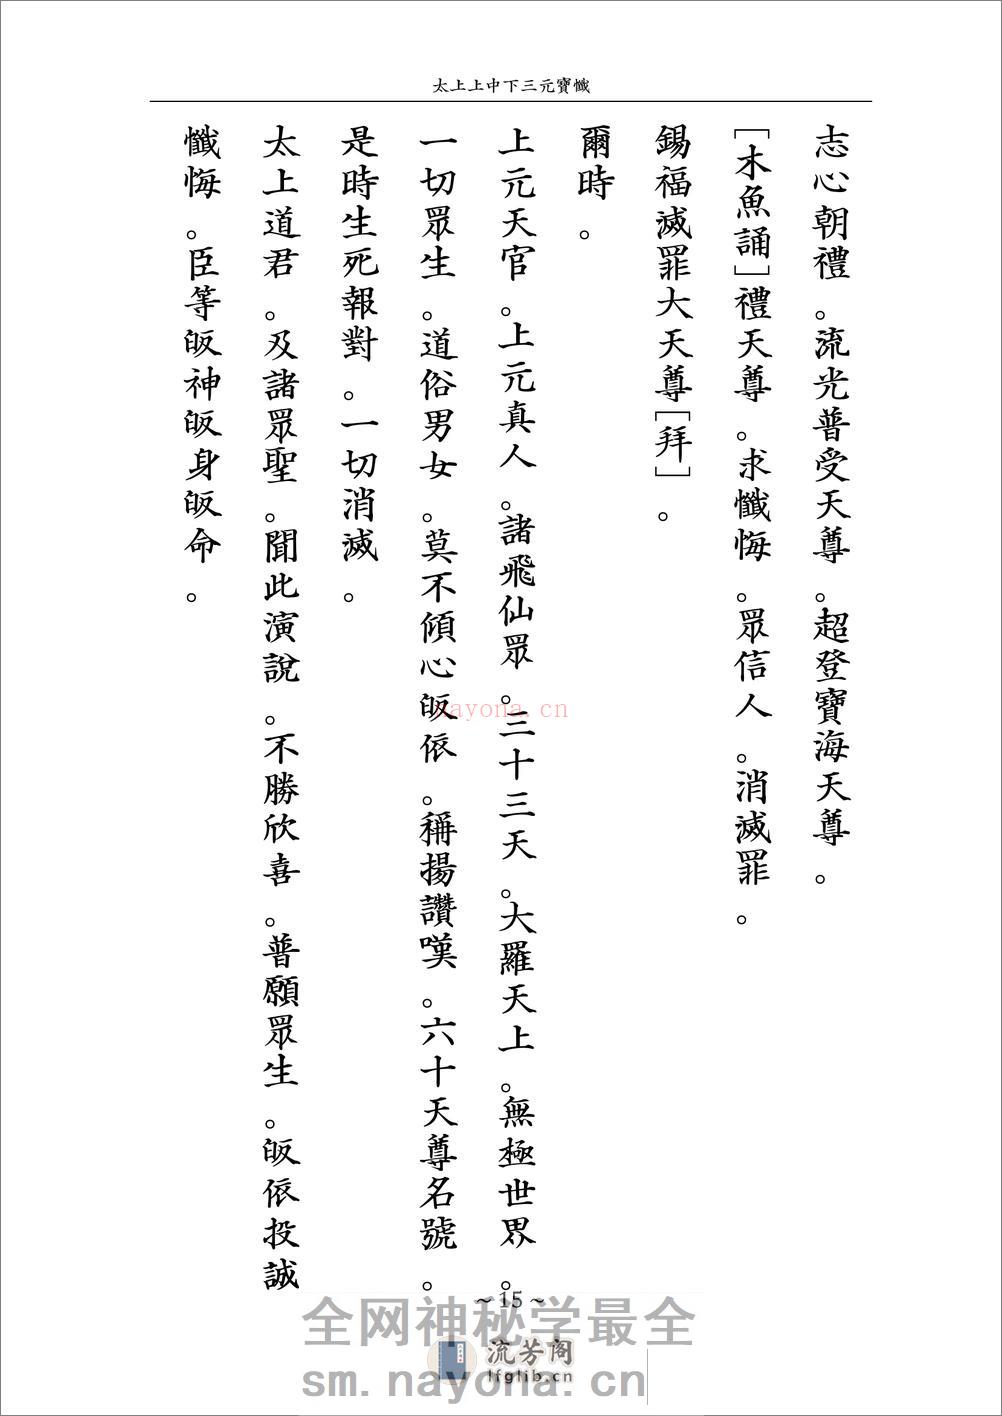 太上上中下三元寶懺
志心朝禮。流光普受天尊。超登寶海天尊。
［木魚誦］禮天尊。求懺悔。眾信人。消滅罪。
錫福滅罪大天尊［拜］。
爾時。
上元天官。上元真人。諸飛仙眾。三十三天。大羅天上。無極世界。
一切眾生。道俗男女。莫不傾心皈依。稱揚讚嘆。六十天尊名號。
是時生死報對。一切消滅。
太上道君。及諸眾聖。聞此演說。不勝欣喜。普願眾生。皈依投誠
懺悔。臣等皈神皈身皈命。
nayona.cn
~ 15 ~
全网神秘学最全
流芳阁
lfglib.cn
sm.nayona.cn